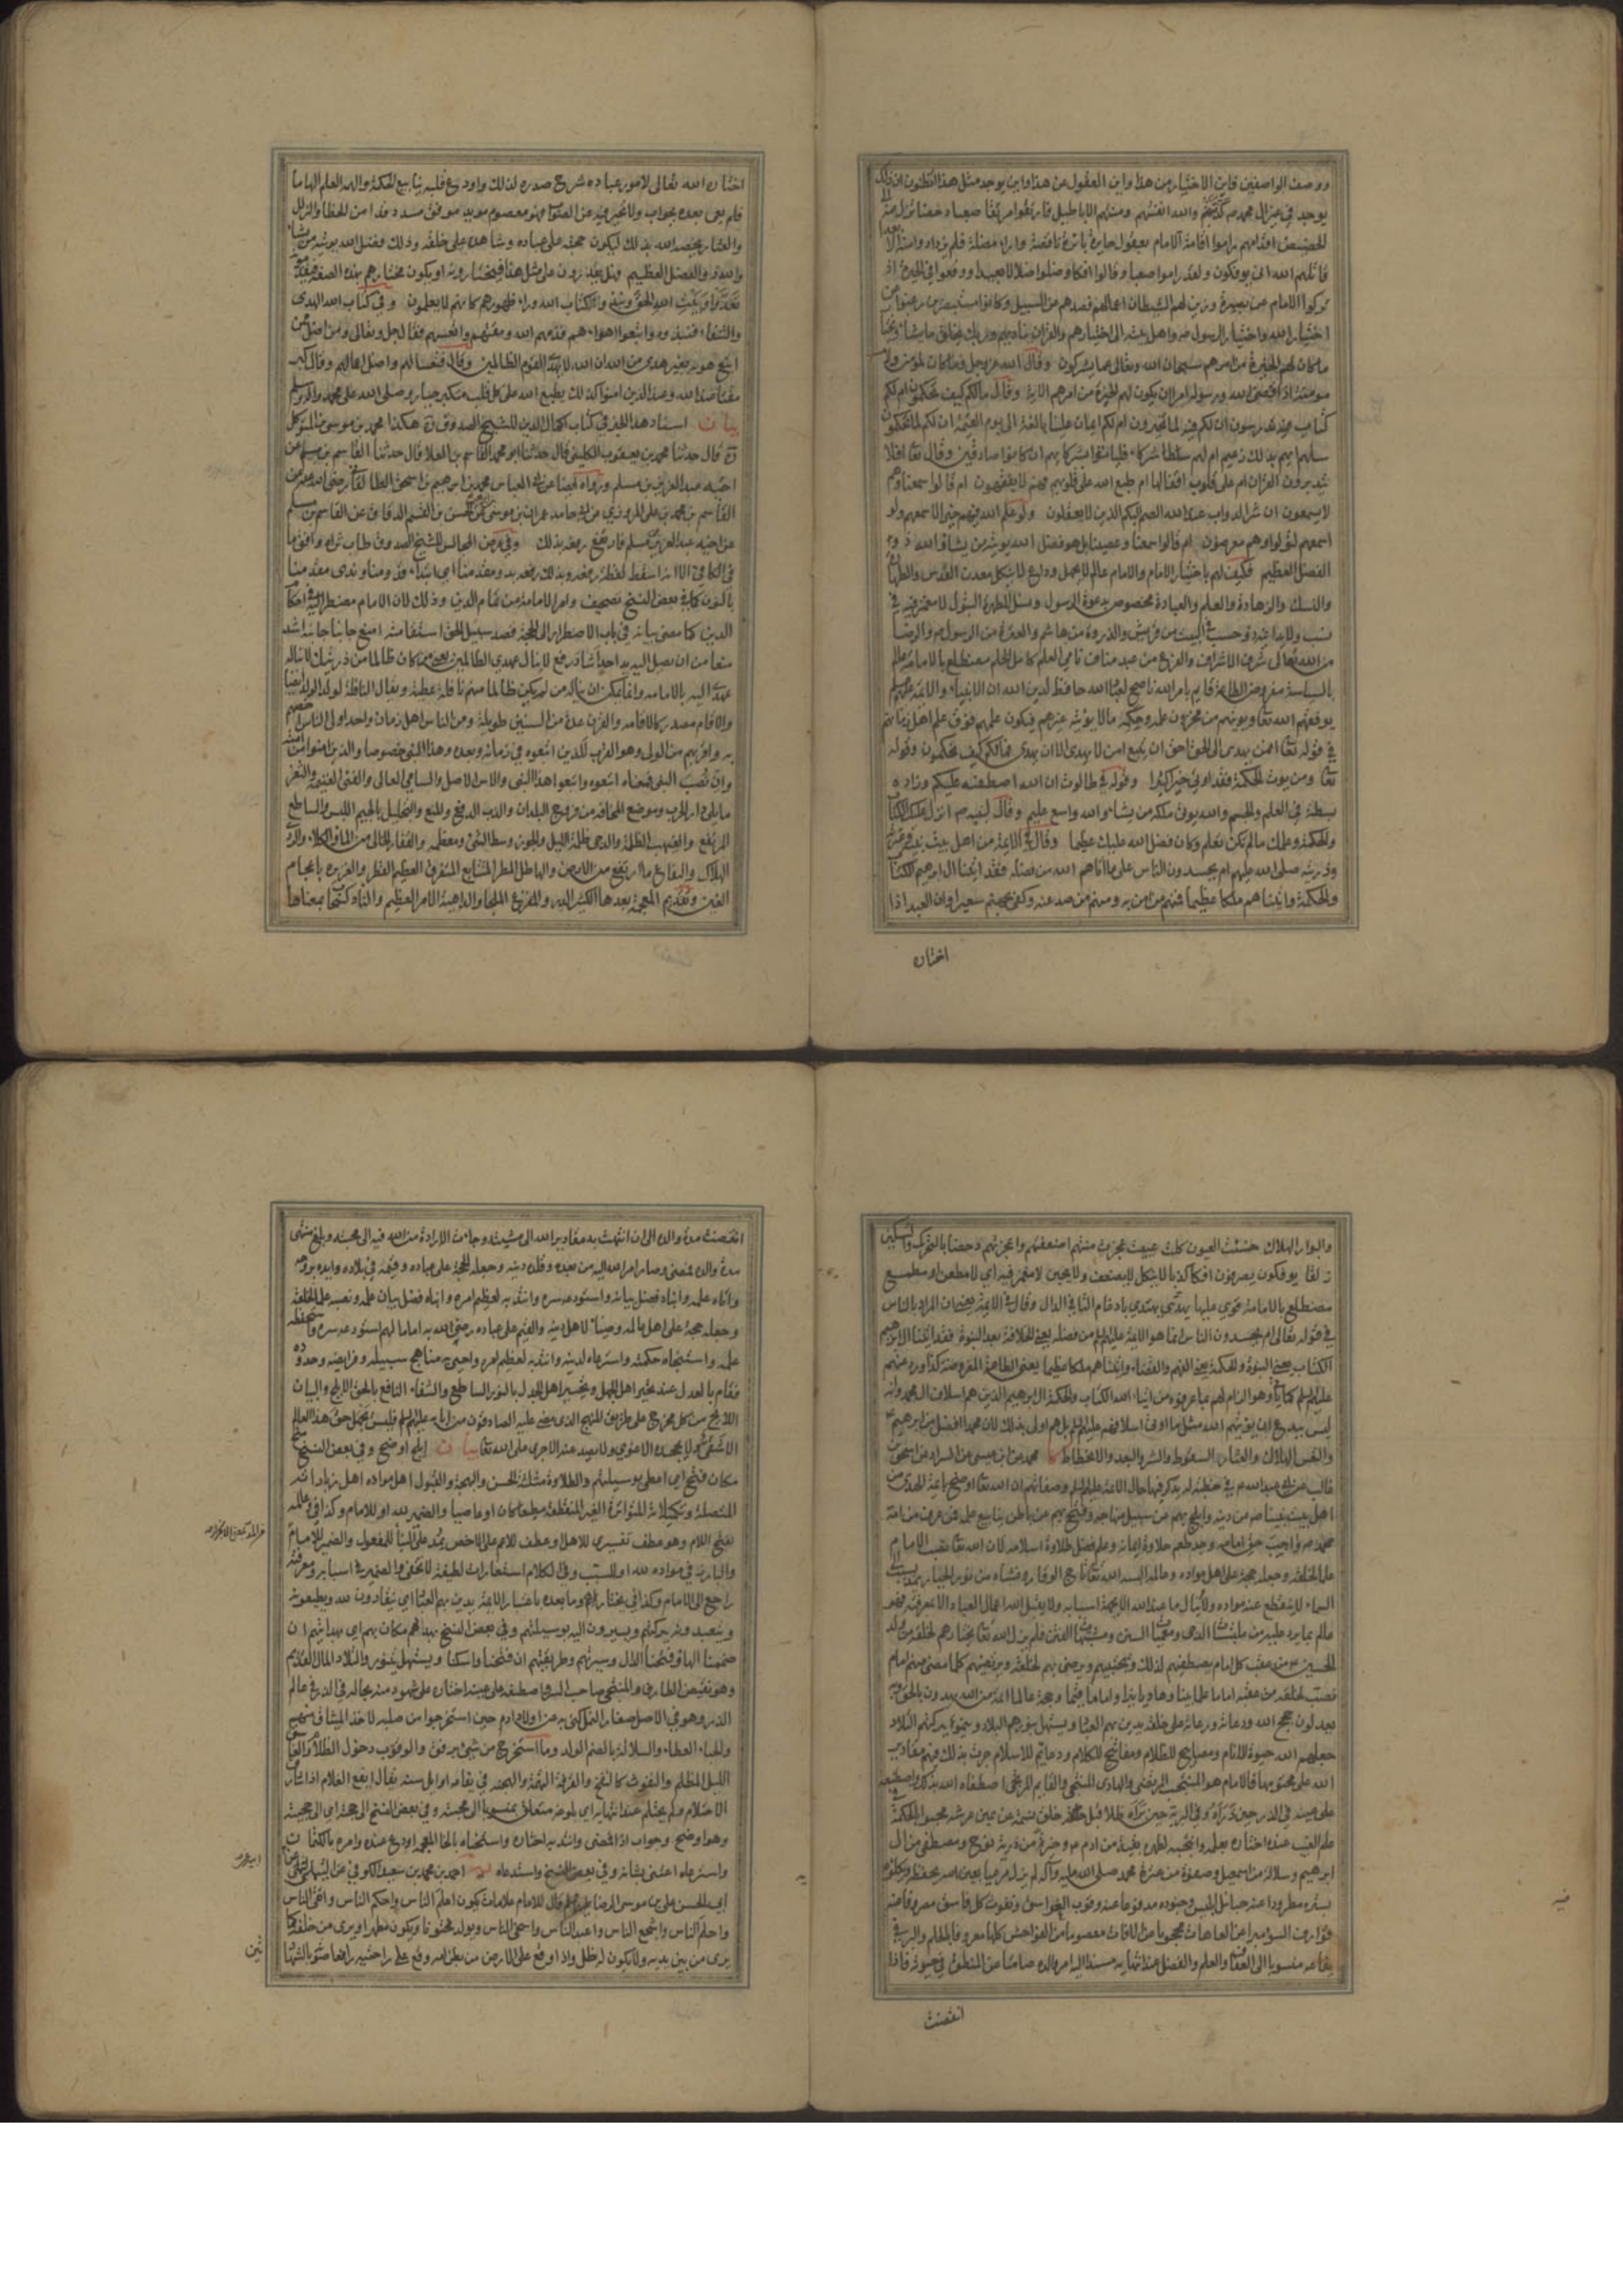 ووصف الواصفين فاين الاختيار من هذا واين العقول عن هذا واين يوجد مثل هذا اتظنون ان ذلك
يوجد في غير ال محمد ص كذبتهم والله انفسهم ومنتهم الاباطيل فارتقوا مرتقا صعبا دحضا تزل عنه الى
الحضيض اقدامهم راموا اقامة الامام بعقول حايرة بائرة ناقصة واراء مضلة فلم يزدادوا منه الا بعدا
قاتلهم الله انى يؤفكون ولقد راموا صعبا وقالوا افكا وضلوا ضلالا بعيدا ووقعوا في الحيرة اذ
تركوا الامام عن بصيرة وزين لهم الشيطان اعمالهم فصدهم عن السبيل وكانوا مستبصرين رغبوا عن
اختيار الله واختيار رسول الله ص واهل بيته الى اختيارهم والقران يناديهم وربك يخلق ما يشاء ويختار
ما كان لهم الخيرة من امرهم سبحان الله وتعالى عما يشركون وقال الله عز وجل وما كان لمؤمن ولا
مؤمنة اذا قضى الله ورسوله امرا ان يكون لهم الخيرة من امرهم الاية وقال ما لكم كيف تحكمون ام لكم
كتاب فيه تدرسون ان لكم فيه لما تخيرون ام لكم ايمان علينا بالغة الى يوم القيمة ان لكم لما تحكمون
سلهم ايهم بذلك زعيم ام لهم شركاء فلياتوا بشركائهم ان كانوا صادقين وقال تعا افلا
يتدبرون القران ام على قلوب اقفالها ام طبع الله على قلوبهم فهم لا يفقهون ام قالوا سمعنا وهم
لا يسمعون ان شر الدواب عند الله الصم البكم الذين لا يعقلون ولو علم الله فيهم خيرا لاسمعهم ولو
اسمعهم لتولوا وهم معرضون ام قالوا سمعنا وعصينا بل هو فضل الله يؤتيه من يشاء والله ذو
الفضل العظيم فكيف لهم باختيار الامام والامام عالم لا يجهل وداع لا ينكل معدن القدس والطهارة
والنسك والزهادة والعلم والعبادة مخصوص بدعوة الرسول ونسل المطهرة البتول لا مغمز فيه في
نسب ولا يدانيه ذو حسب في البيت من قريش والذروة من هاشم والعترة من الرسول ص والرضا
من الله تعالى شرف الاشراف والفرع من عبد مناف نامي العلم كامل الحلم مضطلع بالامامة عالم
بالسياسة مفروض الطاعة قايم بامر الله ناصح لعباد الله حافظ لدين الله ان الانبياء والائمة عليهم السلم
يوفقهم الله تعا ويؤتيهم من مخزون علمه وحكمه ما لا يؤتيه غيرهم فيكون علمهم فوق علم اهل زمانهم
في قوله تعا افمن يهدى الى الحق احق ان يتبع امن لا يهدى الا ان يهدى فما لكم كيف تحكمون وقوله
تعا ومن يؤت الحكمة فقد اوتي خيرا كثيرا وقوله في طالوت ان الله اصطفيه عليكم وزاده
بسطة في العلم والجسم والله يؤتي ملكه من يشاء والله واسع عليم وقال لنبيه ص انزل عليك الكتاب
والحكمة وعلمك ما لم تكن تعلم وكان فضل الله عليك عظيما وقال في الائمة من اهل بيت نبيه وعترته
وذريته صلى الله عليهم ام يحسدون الناس على ما اتاهم الله من فضله فقد اتينا ال ابرهيم الكتاب
والحكمة واتيناهم ملكا عظيما فمنهم من امن به ومنهم من صد عنه وكفى بجهنم سعيرا وان العبد اذا
اختاره
اختاره الله تعالى لامور عباده شرح صدره لذلك واودع قلبه ينابيع الحكمة والهمه العلم الهاما
فلم يعي بعده بجواب ولا تحير فيه عن الصواب فهو معصوم مؤيد موفق مسدد قد امن الخطا والزلل
والعثار يخصه الله بذلك ليكون حجته على عباده وشاهده على خلقه وذلك فضل الله يؤتيه من يشاء
والله ذو الفضل العظيم فهل يقدرون على مثل هذا فيختارونه او يكون مختارهم بهذه الصفة فيقدمونه
تعدوا وبيت الله الحق ونبذوا كتاب الله وراء ظهورهم كانهم لا يعلمون وفي كتاب الله الهدى
والشفاء فنبذوه واتبعوا اهواءهم فذمهم الله ومقتهم واتعسهم فقال جل وتعالى ومن اضل ممن
اتبع هويه بغير هدى من الله ان الله لا يهدي القوم الظالمين وقال فتعسا لهم واضل اعمالهم وقال كبر
مقتا عند الله وعند الذين امنوا كذلك يطبع الله على كل قلب متكبر جبار وصلى الله على محمد واله وسلم
بيان اسناد هذا الخبر في كتاب اكمال الدين للشيخ الصدوق ره هكذا محمد بن موسى بن المتوكل
ره قال حدثنا محمد بن يعقوب الكليني قال حدثنا ابو محمد القاسم بن العلا قال حدثنا القاسم بن مسلم عن
اخيه عبد العزيز بن مسلم ورواه ايضا عن ابي العباس محمد بن ابرهيم بن اسحق الطالقاني رضي الله عنه عن
القاسم بن محمد بن علي المروزي عن ابي حامد عمران بن موسى عن الحسن بن القسم الدقاق عن القاسم بن مسلم
عن اخيه عبد العزيز بن مسلم
في الكافي الا انه اسقط لفظة
بالنون كما في بعض النسخ تصحيف وامر الامامة من تمام الدين وذلك لان الامام مضطر اليه في احكام
الدين كما مضى بيانه في باب الاضطرار الى الحجة قصد سبيل الحق استقامته امنع جانبا اشد
منعا من ان يصل اليه يد احد
عهدي اليه بالامامة
والاقام مصدر كالاقامة والقرن عدة من السنين طويلة ومن الناس اهل زمان واحد اولى الناس اخصهم
به واقربهم من الولي وهو القرب للذين اتبعوه في زمانه وبعده وهذا النبي خصوصا والذين امنوا من امته
وان نصب النبي فمعناه اتبعوه واتبعوا هذا النبي والاس الاصل والسامي العالي والفتى والثغر
ما يلي دار الحرب وموضع المخافة من فروج البلدان والذب الدفع والمنع والتجليل بالجيم اللبس والساطع
المرتفع والغيهب الظلمة والدجى ظلمة الليل
الهلاك واليفاع ما ارتفع من الارض والهاطل المطر المتتابع المتفرق العظيم القطر والغزيرة باعجام
الغين وتقديم المعجمة بعدها الكثير الدر والمفزع الملجا والداهية الامر العظيم والناد كسحاب بمعناها
والبوار الهلاك خسئت العيون كلت عييت عجزت منتهم اضعفتهم واعجزتهم دحضا بالتحريك والتسكين
زلقا يؤفكون يصرفون افكا كذبا لا ينكل لا يضعف ولا يجبن لا مغمز فيه اي لا مطعن
مضطلع بالامامة قوي عليها يهدي يهتدي بادغام التا في الدال وقال في الائمة
في قوله تعالى ام يحسدون الناس انما هو الائمة عليهم السلم من فضله يعني الخلافة بعد النبوة فقد اتينا ال ابرهيم
الكتاب يعني النبوة والحكمة يعني الفهم والقضاء واتيناهم ملكا عظيما يعني الطاعة المفروضة كذا ورد عنهم
عليهم السلم
ليس ببدع ان يؤتيهم الله مثل ما اوتي اسلافهم عليهم السلم بل هم اولى بذلك لان محمدا افضل من ابرهيم
والتعس الهلاك والعثار السقوط والشر والبعد والانحطاط كا محمد عن ابن عيسى عن السراد عن اسحق بن
غالب عن ابي عبد الله ع في خطبة له يذكر فيها حال الائمة عليهم السلم وصفاتهم ان الله تعا اوضح بائمة الهدى من
اهل بيت نبينا ص عن دينه وابلج بهم عن سبيل منهاجه وفتح بهم عن باطن ينابيع علمه فمن عرف من امة
محمد ص واجب حق امامه وجد طعم حلاوة ايمانه وعلم فضل طلاوة اسلامه لان الله تعا نصب الامام
علما لخلقه وجعله حجة على اهل مواده وعالمه البسه الله تعا تاج الوقار وغشاه من نور الجبار يمد بسبب الى
السماء لا ينقطع عنه مواده ولا ينال ما عند الله الا بجهة اسبابه ولا يقبل الله اعمال العباد الا بمعرفته فهو
عالم بما يرد عليه من ملتبسات الدجى ومعميات السنن ومشبهات الفتن فلم يزل الله تعا يختارهم لخلقه من ولد
الحسين ع من عقب كل امام يصطفيهم لذلك ويجتبيهم ويرضى بهم لخلقه ويرتضيهم كلما مضى منهم امام
نصب لخلقه من عقبه اماما علما بينا وهاديا نيرا واماما قيما وحجة عالما ائمة من الله يهدون بالحق وبه
يعدلون حجج الله ودعاته ورعاته على خلقه يدين بهديهم العباد ويستهل بنورهم البلاد وينمو ببركتهم التلاد
جعلهم الله حيوة للانام ومصابيح للظلام ومفاتيح للكلام ودعايم للاسلام جرت بذلك فيهم مقادير
الله على محتومها فالامام هو المنتجب المرتضى والهادي المنتجى والقايم المرتجى اصطفاه الله بذلك واصطنعه
على عينه في الذر حين ذراه وفي البرية حين براه ظلا قبل خلق نسمة عن يمين عرشه محبوا بالحكمة في
علم الغيب عنده اختاره بعلمه وانتجبه لطهره بقية من ادم ع وخيرة من ذرية نوح ومصطفى من ال
ابرهيم وسلالة من اسمعيل وصفوة من عترة محمد صلى الله عليه وآله لم يزل مرعيا بعين الله يحفظه ويكلؤه
بستره مطرودا عنه حبائل ابليس وجنوده مدفوعا عنه وقوب الغواسق ونفوث كل فاسق مصروفا عنه
قوارف السوء مبرا من العاهات محجوبا عن الافات معصوما من الفواحش كلها معروفا بالحلم والبر في
يفاعه منسوبا الى العفاف والعلم والفضل عند انتهائه مسندا اليه امر والده صامتا عن المنطق في حيوته فاذا
انقضت
انقضت مدة والده الى ان انتهت به مقادير الله الى مشيته وجاءت الارادة من الله فيه الى محبته وبلغ منتهى
مدة والده فمضى وصار امر الله اليه من بعده وقلده دينه وجعله الحجة على عباده وقيمه في بلاده وايده بروحه
واتاه علمه وانباه فضل بيانه واستودعه سره وانتدبه لعظيم امره وانباه فضل بيان علمه ونصبه علما لخلقه
وجعله حجة على اهل عالمه وضياء لاهل دينه والقيم على عباده رضي الله به اماما لهم استودعه سره واستحفظه
علمه واستخباه حكمته واسترعاه لدينه وانتدبه لعظيم امره واحيى به مناهج سبيله وفرايضه وحدوده
فقام بالعدل عند تحير اهل الجهل وتحيير اهل الجدل بالنور الساطع والشفاء النافع بالحق الابلج والبيان
اللايح من كل مخرج على طريق المنهج الذي مضى عليه الصادقون من ابائه عليهم السلم فليس يجهل حق هذا العالم
الا شقي ولا يجحده الا غوي ولا يصد عنه الا جري على الله تعا بيان ابلج اوضح وفي بعض النسخ منح
مكان فتح اي اعطى بوسيلتهم والطلاوة مثلثة الحسن والبهجة والقبول اهل مواده اهل زياداته
المتصلة وتكميلاته المتواترة الغير المنقطعة مطيعا كان او عاصيا والضمير لله او للامام وكذا في عالمه
بفتح اللام وهو عطف تفسيري للاهل او عطف للاعم على الاخص يمد على البناء للمفعول والضمير للامام
والبارز في مواده لله او للسبب وفي الكلام استعارات لطيفة لا تخفى والضمير في اسبابه ومعرفته
راجع الى الامام وكذا في يختارهم وما بعده باعتبار الائمة يدين بهم العباد اي ينقادون لله ويطيعونه
وفي بعض النسخ بهداهم مكان بهم اي بهدايتهم ان
ضممنا الها وفتحنا الدال وسيرتهم وطريقتهم ان فتحنا واسكنا ويستهل يتنور والتلاد المال القديم
وهو نقيض الطارف والمنتجى صاحب السر اصطنعه على عينه اختاره على شهود منه بحاله في الذر في عالم
الذر وهو في الاصل صغار النمل كنى به عن اولاد ادم حين استخرجوا من صلبه لاخذ الميثاق منهم
والحباء العطاء والسلالة بالضم الولد وما استخرج من شيء برفق والوقوب دخول الظلام والغاسق
الليل المظلم والنفوث كالنفخ والقرفة التهمة والهجنة في يفاعه اوايل سنه يقال ايفع الغلام اذا شارف
الاحتلام ولم يحتلم عند انتهائه اي بلوغه متعلق بمنسوبا الى محبته وفي بعض النسخ الى حجته اي الى حجيته
وهو اوضح وجواب اذا فمضى وانتدبه اختاره واستخباه بالخا المعجمة اودع عنده وامره بالكتمان
واسترعاه اعتنى بشانه وفي بعض النسخ واستدعاه يه احمد بن محمد بن سعيد الكوفي عن
ابي الحسن علي بن موسى الرضا عليهما السلم قال للامام علامات يكون اعلم الناس واحكم الناس واتقى الناس
واحلم الناس واشجع الناس واعبد الناس واسخى الناس ويولد مختونا ويكون مطهرا ويرى من خلفه كما
يرى من بين يديه ولا يكون له ظل واذا وقع على الارض من بطن امه وقع على راحتيه رافعا صوته بالشهادتين